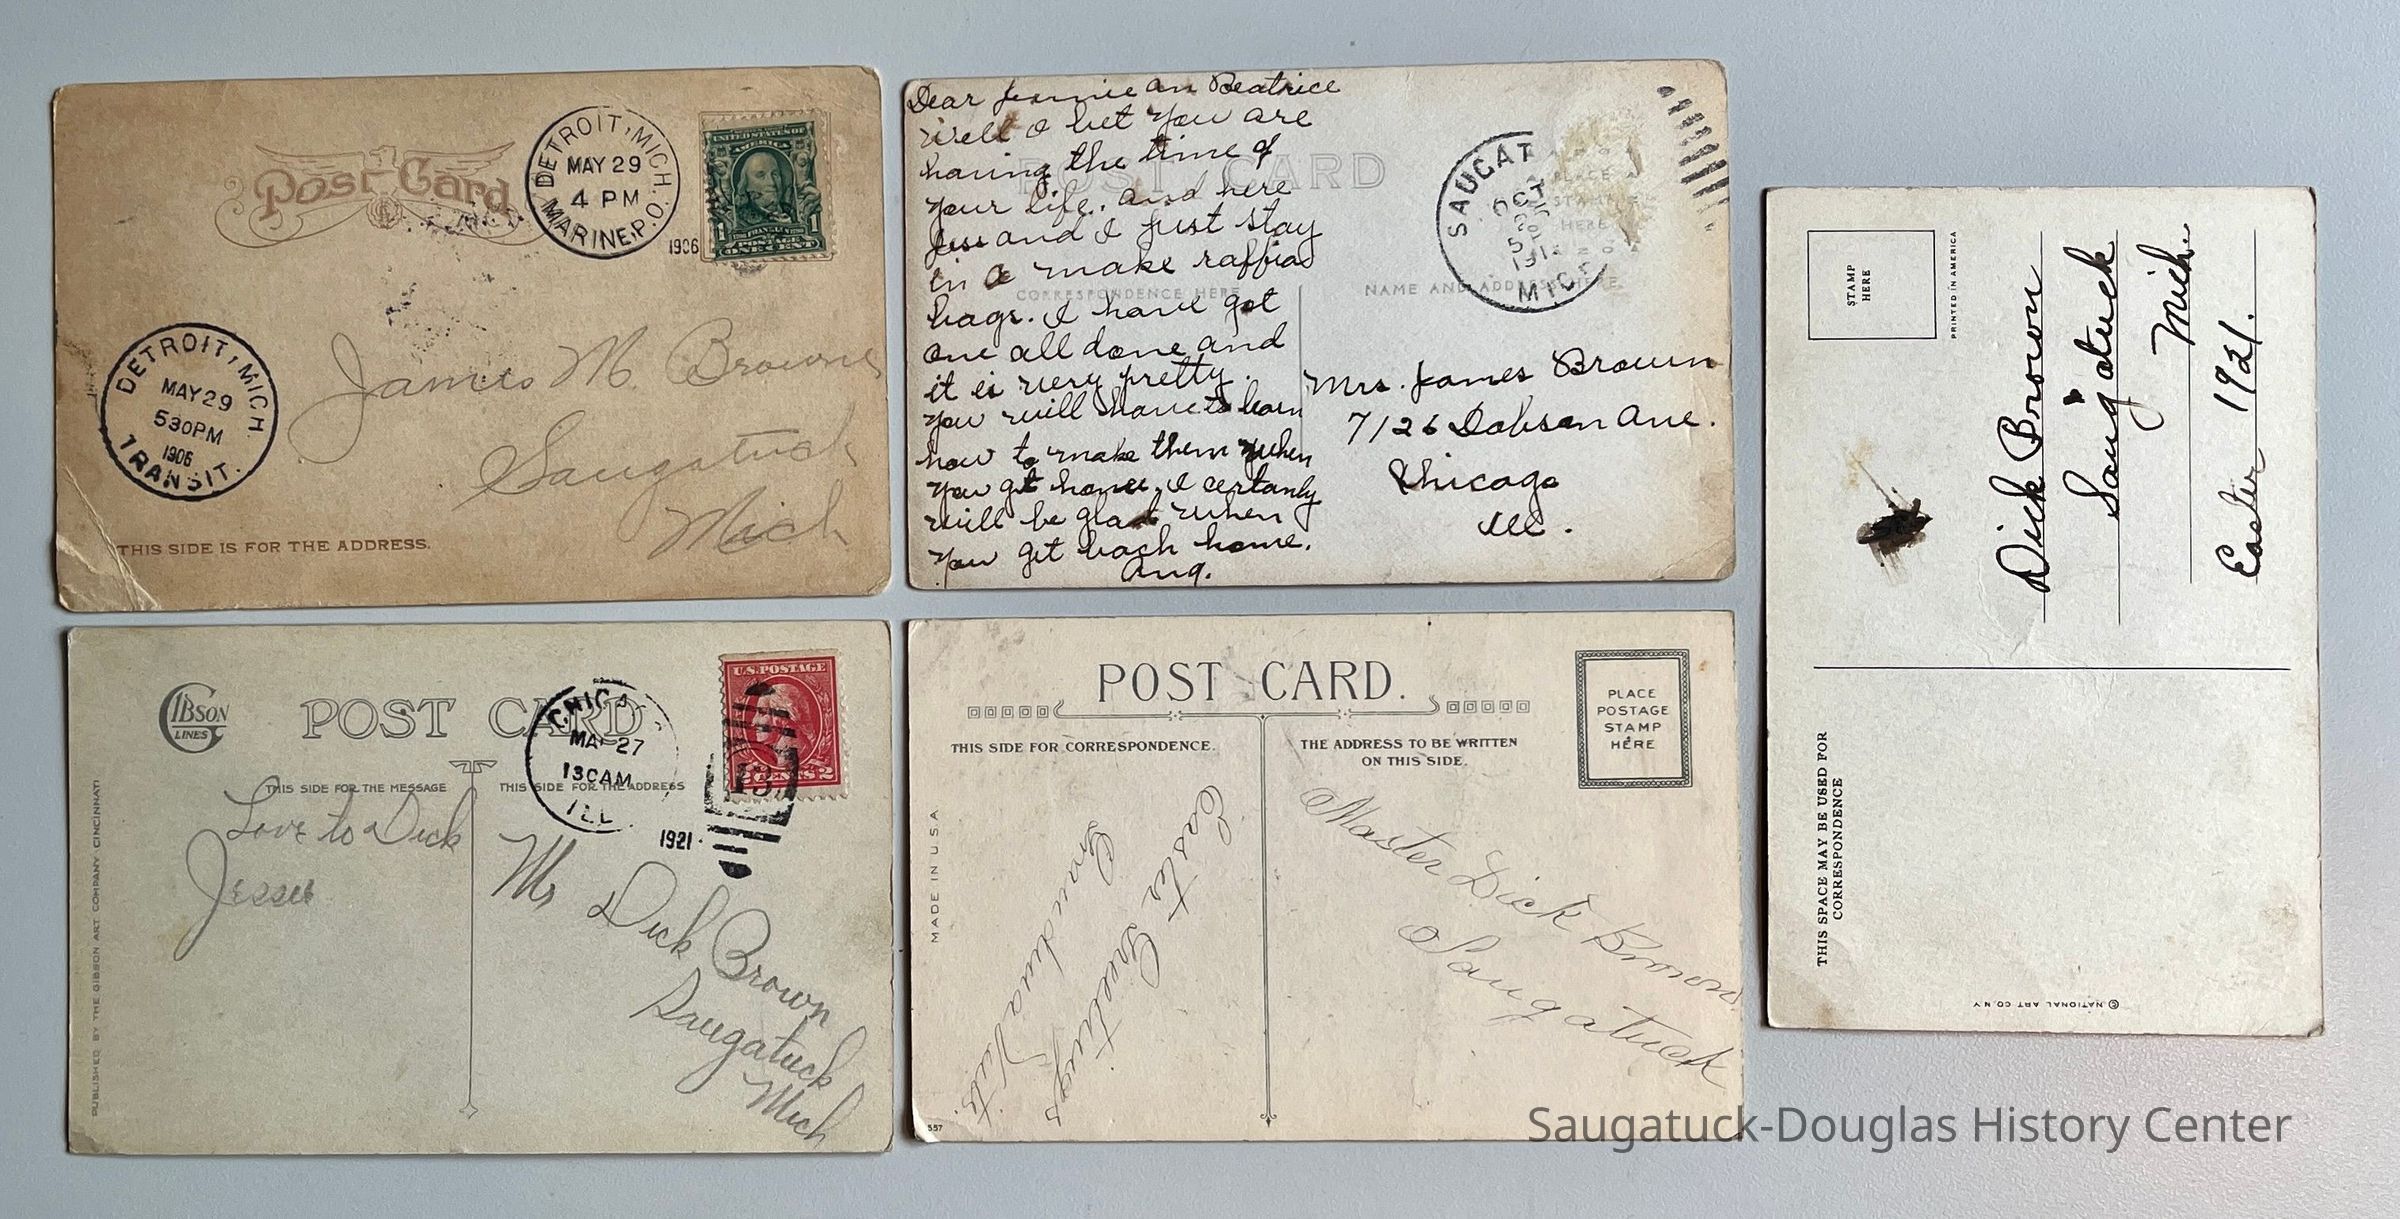 Post Card
DETROIT, MICH.
MAY 29
4 PM
MARINE, P.O.
1906
UNITED STATES OF
AMERICA
1 1
FRANKLIN
POSTAGE
ONE CENT
DETROIT, MICH.
MAY 29
530PM
1906
TRANSIT.
James M. Browne
Saugatuck
Mich
THIS SIDE IS FOR THE ADDRESS.
POST CARD
Dear Jennie an Beatrice
well I bet you are
having the time of
your life. and here
Jess and I just stay
in a make raffia
bags. I have got
one all done and
it is very pretty.
you will have to learn
how to make them when
you get home. I certanly
will be glad when
you get back home.
Aug.
CORRESPONDENCE HERE
NAME AND ADDRESS HERE
PLACE
STAMP
HERE
SAUGAT
OCT
MICH
Mrs. James Brown
7126 Dobson Ave.
Chicago
Ill.
STAMP
HERE
PRINTED IN AMERICA
Dick Brown
Saugatuck
Mich.
Easter 1921.
THIS SPACE MAY BE USED FOR
CORRESPONDENCE
© NATIONAL ART CO. N.Y.
GIBSON
LINES
POST CARD
THIS SIDE FOR THE MESSAGE
THIS SIDE FOR THE ADDRESS
CHICA
MAR 27
130AM
ILL.
1921
U.S. POSTAGE
2 CENTS 2
13
Love to Dick
Jessie
Mr Dick Brown
Saugatuck
Mich
PUBLISHED BY THE GIBSON ART COMPANY CINCINNATI
POST CARD.
THIS SIDE FOR CORRESPONDENCE.
THE ADDRESS TO BE WRITTEN
ON THIS SIDE.
PLACE
POSTAGE
STAMP
HERE
Easter Greetings
Grandma
Master Dick Brown
Saugatuck
MADE IN U.S.A.
557
Saugatuck-Douglas History Center